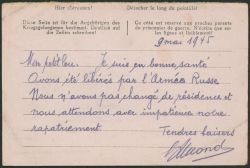 Hier abtrennen!
Détacher le long du pointillé!
Diese Seite ist für die Angehörigen des
Kriegsgefangenen bestimmt. Deutlich auf
die Zeilen schreiben!
Ce côté est réservé aux proches parents
du prisonnier de guerre. N'écrire que sur
les lignes et lisiblement!
9 mai 1945
Mon petit Je suis en bonne santé
Avons été libérés par l'Armée Russe
Nous n'avons pas changé de résidence et
nous attendons avec impatience notre
rapatriement.
Tendres baisers